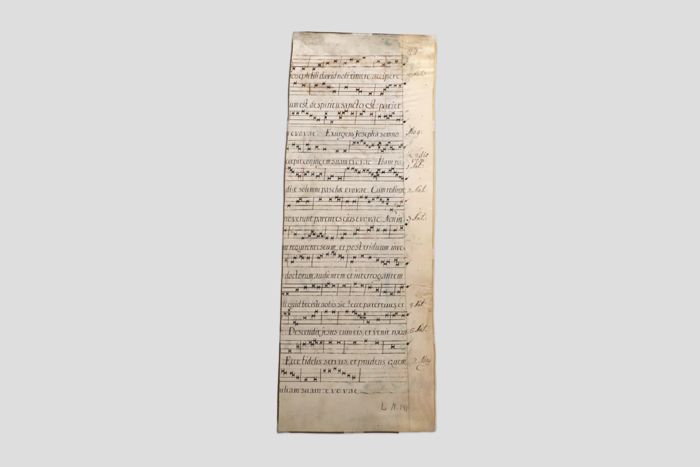 Joseph fili david noli timere accipere
um est, de spiritu sancto est. pariet
e v o v ae. Exurgens Joseph a somno
accepit conjugem suam e v o v ae. Ibant pa
die solemni paschæ. e v o v ae. Cum redirent
2 Ant.
noverunt parentes ejus e v o v ae. Non in
3 Ant.
m requirentes eum, et post triduum inve
doctorum, audientem et interrogantem
id fecisti nobis sic? ecce pater tuus, et
4 Ant.
Descendit Jesus cum eis, et venit naza
5 Ant.
Ecce fidelis servus, et prudens quem
2. Mag
miliam suam: e v o v ae.